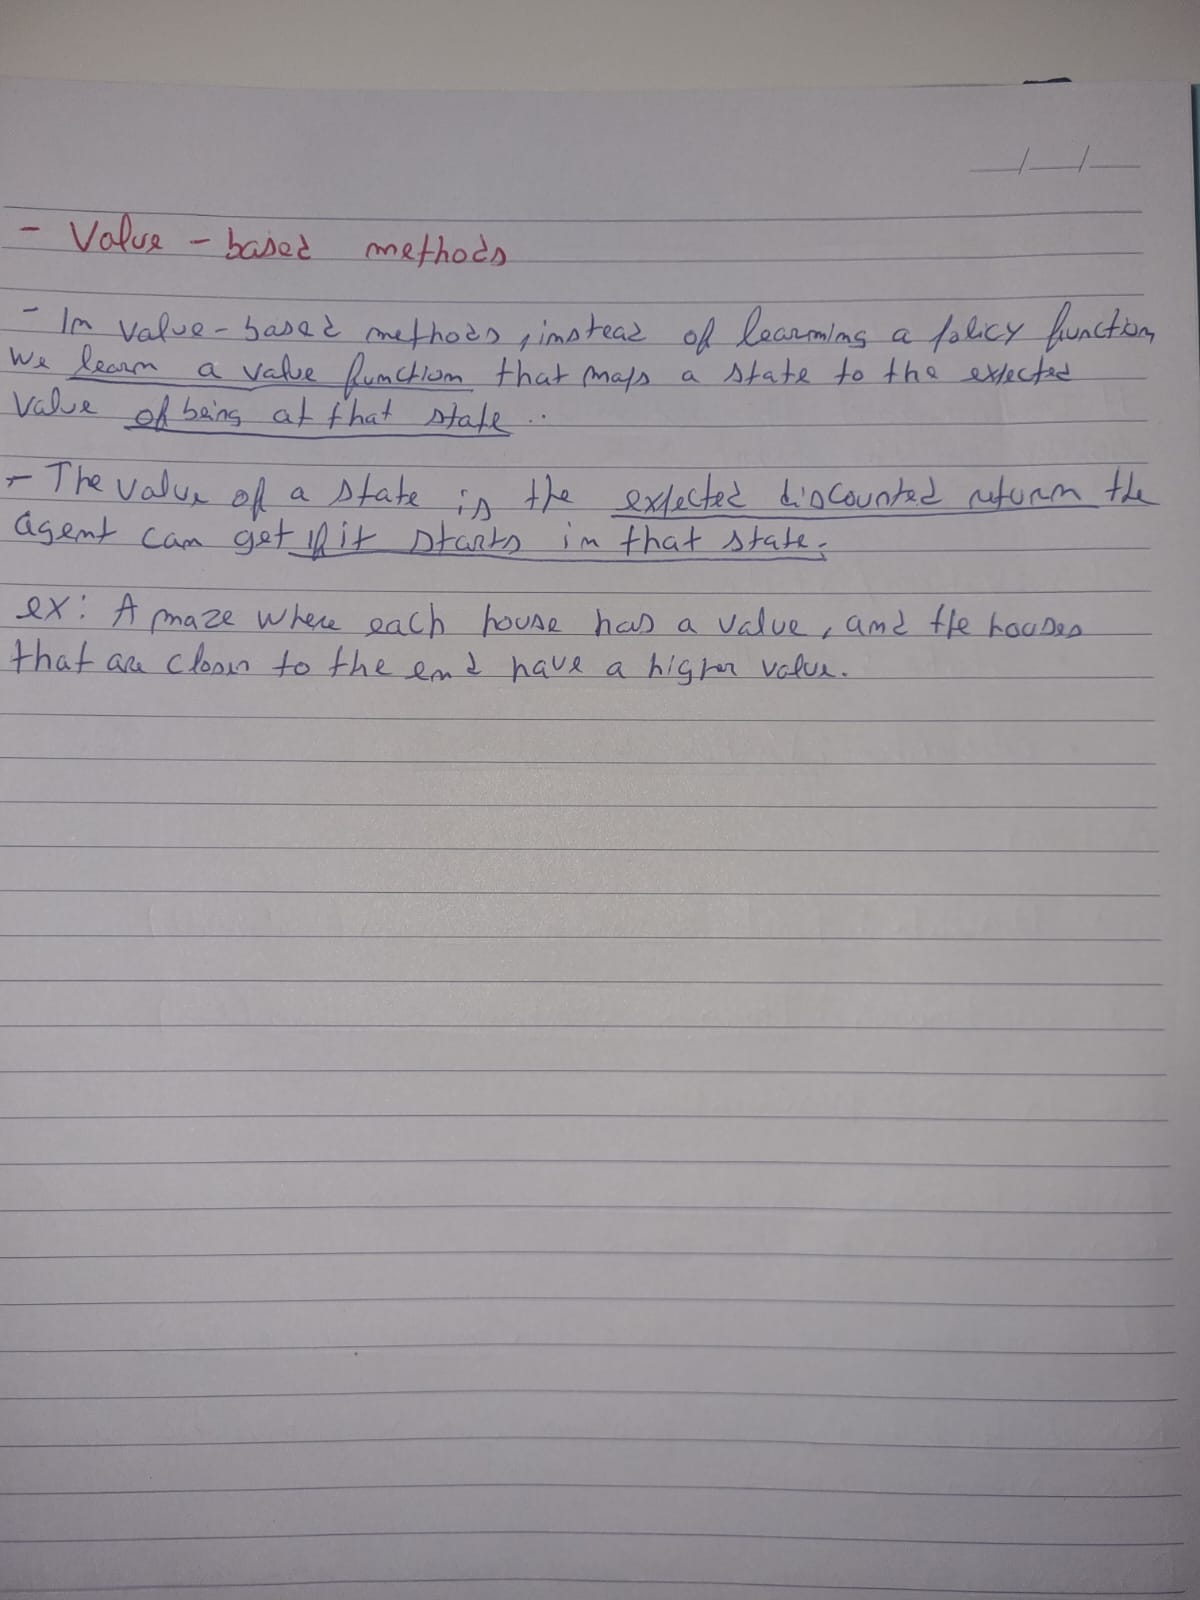 - Value-based methods
- In value-based methods, instead of learning a policy function,
we learn a value function that maps a state to the expected
value of being at that state..
- The value of a state is the expected discounted return the
agent can get if it starts in that state.
ex: A maze where each house has a value, and the houses
that are closer to the end have a higher value.